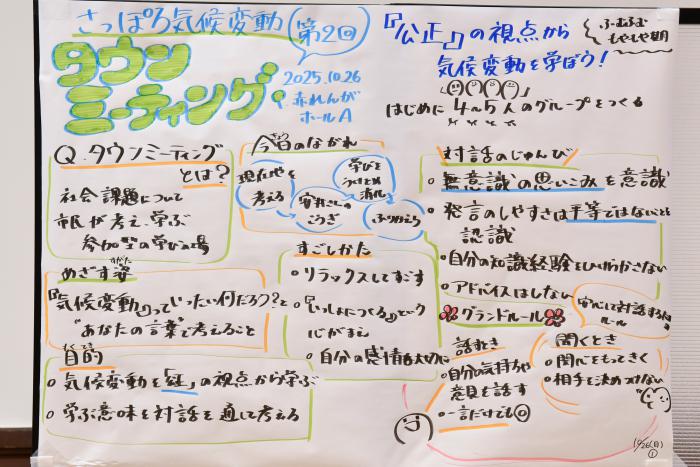 さっぽろ気候変動 第2回
タウンミーティング
2025.10.26
赤れんがホールA
『公正』の視点から
気候変動を学ぼう!
ふーむふむ
もやもや期
はじめに 4~5人のグループをつくる
Q.タウンミーティングとは?
社会課題について
市民が考え、学ぶ
参加型の学びの場
めざす姿
すがた
『気候変動』っていったい何だろう?と
"あなたの言葉"で考えること
目的
もくてき
気候変動を『公正』の視点から学ぶ
学ぶ意味を対話を通して考える
今日のながれ
きょう
現在地を考える
こうぎ
学びをうけとめ消化
ふりかえり
すごしかた
リラックスしてすごす
『いっしょにつくる』という
心がまえ
自分の感情も大切に
対話のじゅんび
無意識の思いこみを意識
発言のしやすさは平等ではないと
認識
自分の知識経験をひけらかさない
アドバイスはしない
グランドルール
安心して対話するためのルール
話すとき
自分の気持ちや
意見を話す
一言だけでも◎
聞くとき
関心をもってきく
相手を決めつけない
10/26(日)
①